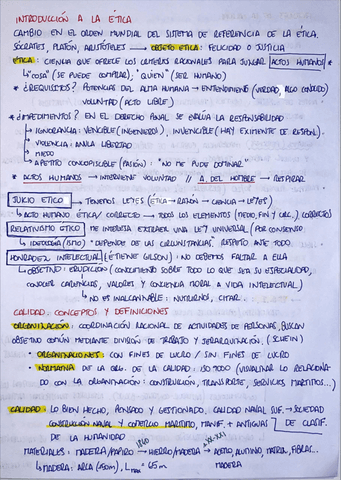 INTRODUCCIÓN A LA ÉTICA
CAMBIO EN EL ORDEN MUNDIAL DEL SISTEMA DE REFERENCIA DE LA ÉTICA.
SÓCRATES, PLATÓN, ARISTÓTELES → OBJETO ÉTICA: FELICIDAD O JUSTICIA
ÉTICA: CIENCIA QUE OFRECE LOS CRITERIOS RACIONALES PARA JUZGAR ACTOS HUMANOS *
↳ "COSA" (SE PUEDE COMPRAR), "QUIEN" (SER HUMANO)
* ¿REQUISITOS? POTENCIAS DEL ALMA HUMANA → ENTENDIMIENTO (VERDAD, ALGO CONOCIDO)
VOLUNTAD (ACTO LIBRE)
* ¿IMPEDIMENTOS? EN EL DERECHO PENAL SE EVALÚA LA RESPONSABILIDAD
↳ IGNORANCIA: VENCIBLE (INGENIERO), INVENCIBLE (HAY EXIMENTE DE RESPON.)
↳ VIOLENCIA: ANULA LIBERTAD
↳ MIEDO
↳ APETITO CONCUPISCIBLE (PASIÓN): "NO ME PUDE DOMINAR"
* ACTOS HUMANOS → INTERVIENE VOLUNTAD // A. DEL HOMBRE → RESPIRAR
JUICIO ÉTICO → TENEMOS LEYES (ÉTICA → RAZÓN → CIENCIA → LEYES)
↳ ACTO HUMANO ÉTICA/CORRECTO → TODOS LOS ELEMENTOS (MEDIO, FIN Y CIRC.) CORRECTOS
RELATIVISMO ÉTICO ME INTERESA EXTRAER UNA LEY UNIVERSAL (POR CONSENSO.
↳ IDEOLOGÍA (ISMO) "DEPENDE DE LAS CIRCUNSTANCIAS" RESPETO ANTE TODO
HONRADEZ INTELECTUAL (ETIENNE GILSON): NO DEBEMOS FALTAR A ELLA
↳ OBJETIVO: ERUDICIÓN (CONOCIMIENTO SOBRE TODO LO QUE SEA SU ESPECIALIDAD,
CONOCER CARENCIAS, VALORES Y CONCIENCIA MORAL A VIDA INTELECTUAL)
↳ NO ES INALCANZABLE: NUTRIRNO, CITAR...
CALIDAD: CONCEPTOS Y DEFINICIONES
ORGANIZACIÓN: COORDINACIÓN RACIONAL DE ACTIVIDADES DE PERSONAS, BUSCAN
OBJETIVO COMÚN MEDIANTE DIVISIÓN DE TRABAJO Y JERARQUIZACIÓN. (SCHEIN)
• ORGANIZACIONES: CON FINES DE LUCRO / SIN FINES DE LUCRO
• NORMATIVA DE LA ORG. DE LA CALIDAD: ISO (VISUALIZAR LO RELACIONA-
DO CON LA ORGANIZACIÓN: CONSTRUCCIÓN, TRANSPORTE, SERVICIOS MARÍTIMOS...)
CALIDAD: LO BIEN HECHO, PENSADO Y GESTIONADO. CALIDAD NAVAL SUF. → SOCIEDAD
CONSTRUCCIÓN NAVAL Y COMERCIO MARÍTIMO, MANIF. + ANTIGUAS DE CLASIF.
DE LA HUMANIDAD
1860 XX-XXI
MATERIALES: MADERA/PAPIRO → HIERRO/MADERA → ACERO, ALUMINIO, MATRIZ, FIBRAS...
↳ MADERA: ARCA (150m), Lmax = 65m MADERA